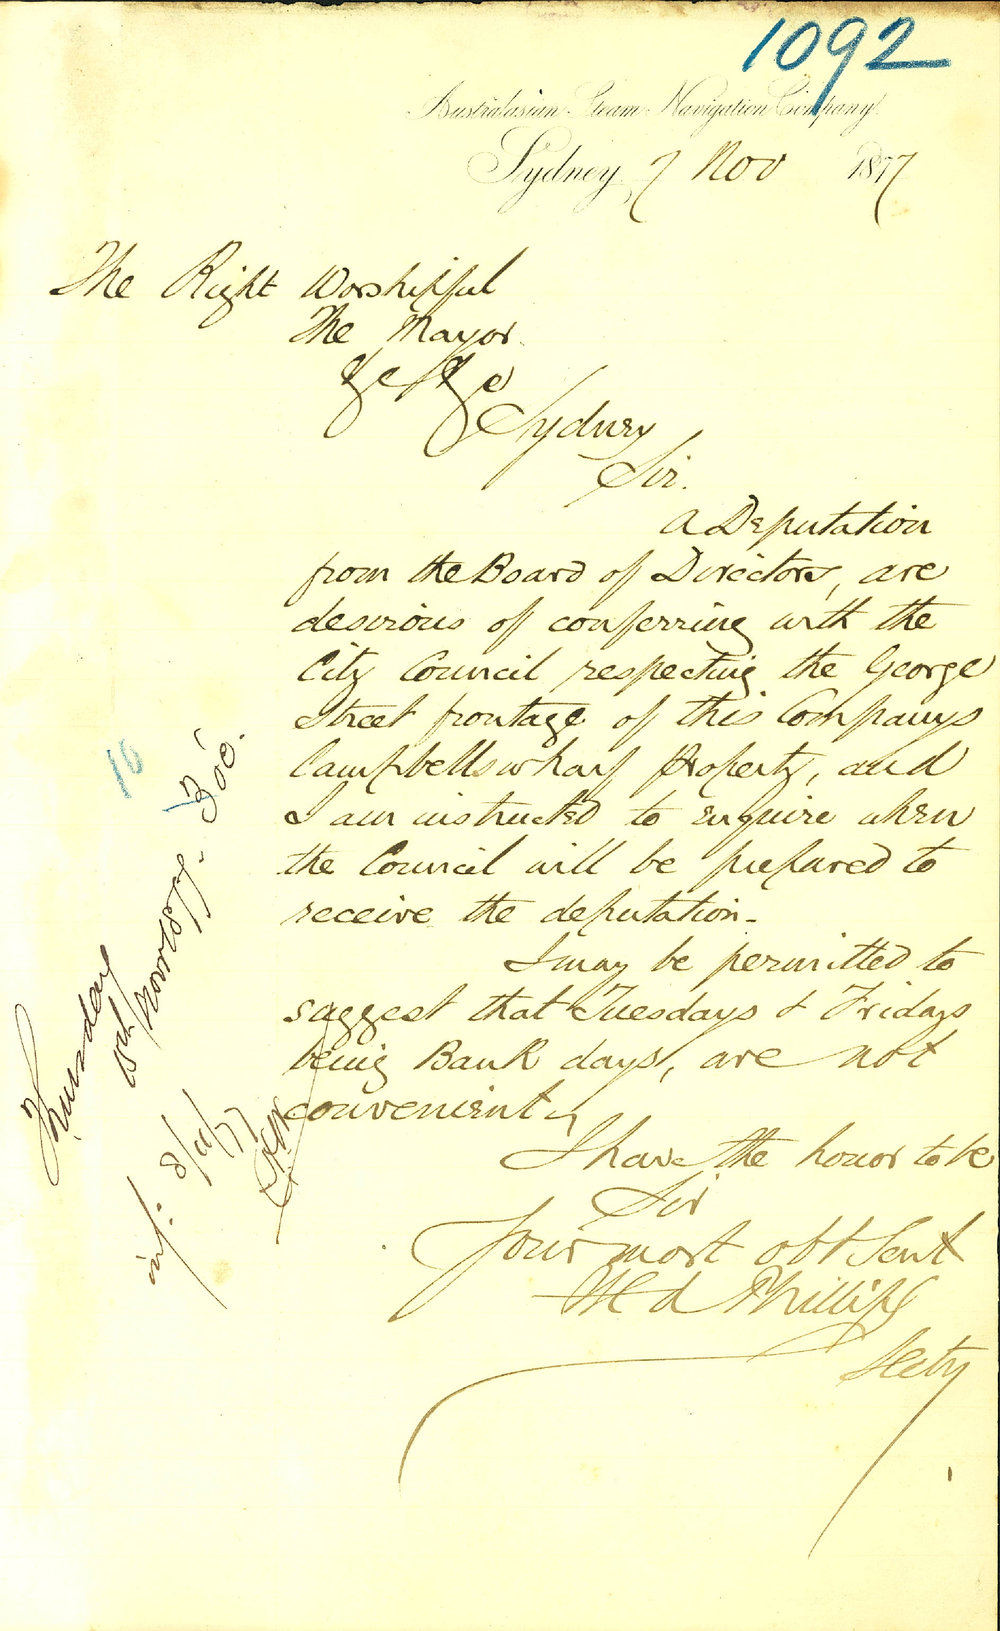 1092
Australasian Steam Navigation Company.
Sydney, 7 Nov 1877
The Right Worshipful
The Mayor.
&c &c
Sydney
Sir.
A Deputation
from the Board of Directors, are
desirous of conferring with the
City Council respecting the George
Street frontage of this Companys
Campbells wharf Property, and
I am instructed to enquire when
the Council will be prepared to
receive the deputation.
I may be permitted to
suggest that Tuesdays & Fridays
being Bank days, are not
convenient.
I have the honor to be
Sir
Your most obt Servt
Phillips
Secty
10
Thursday
15th Novr 1877. 3 oc.
inf: 8/11/77